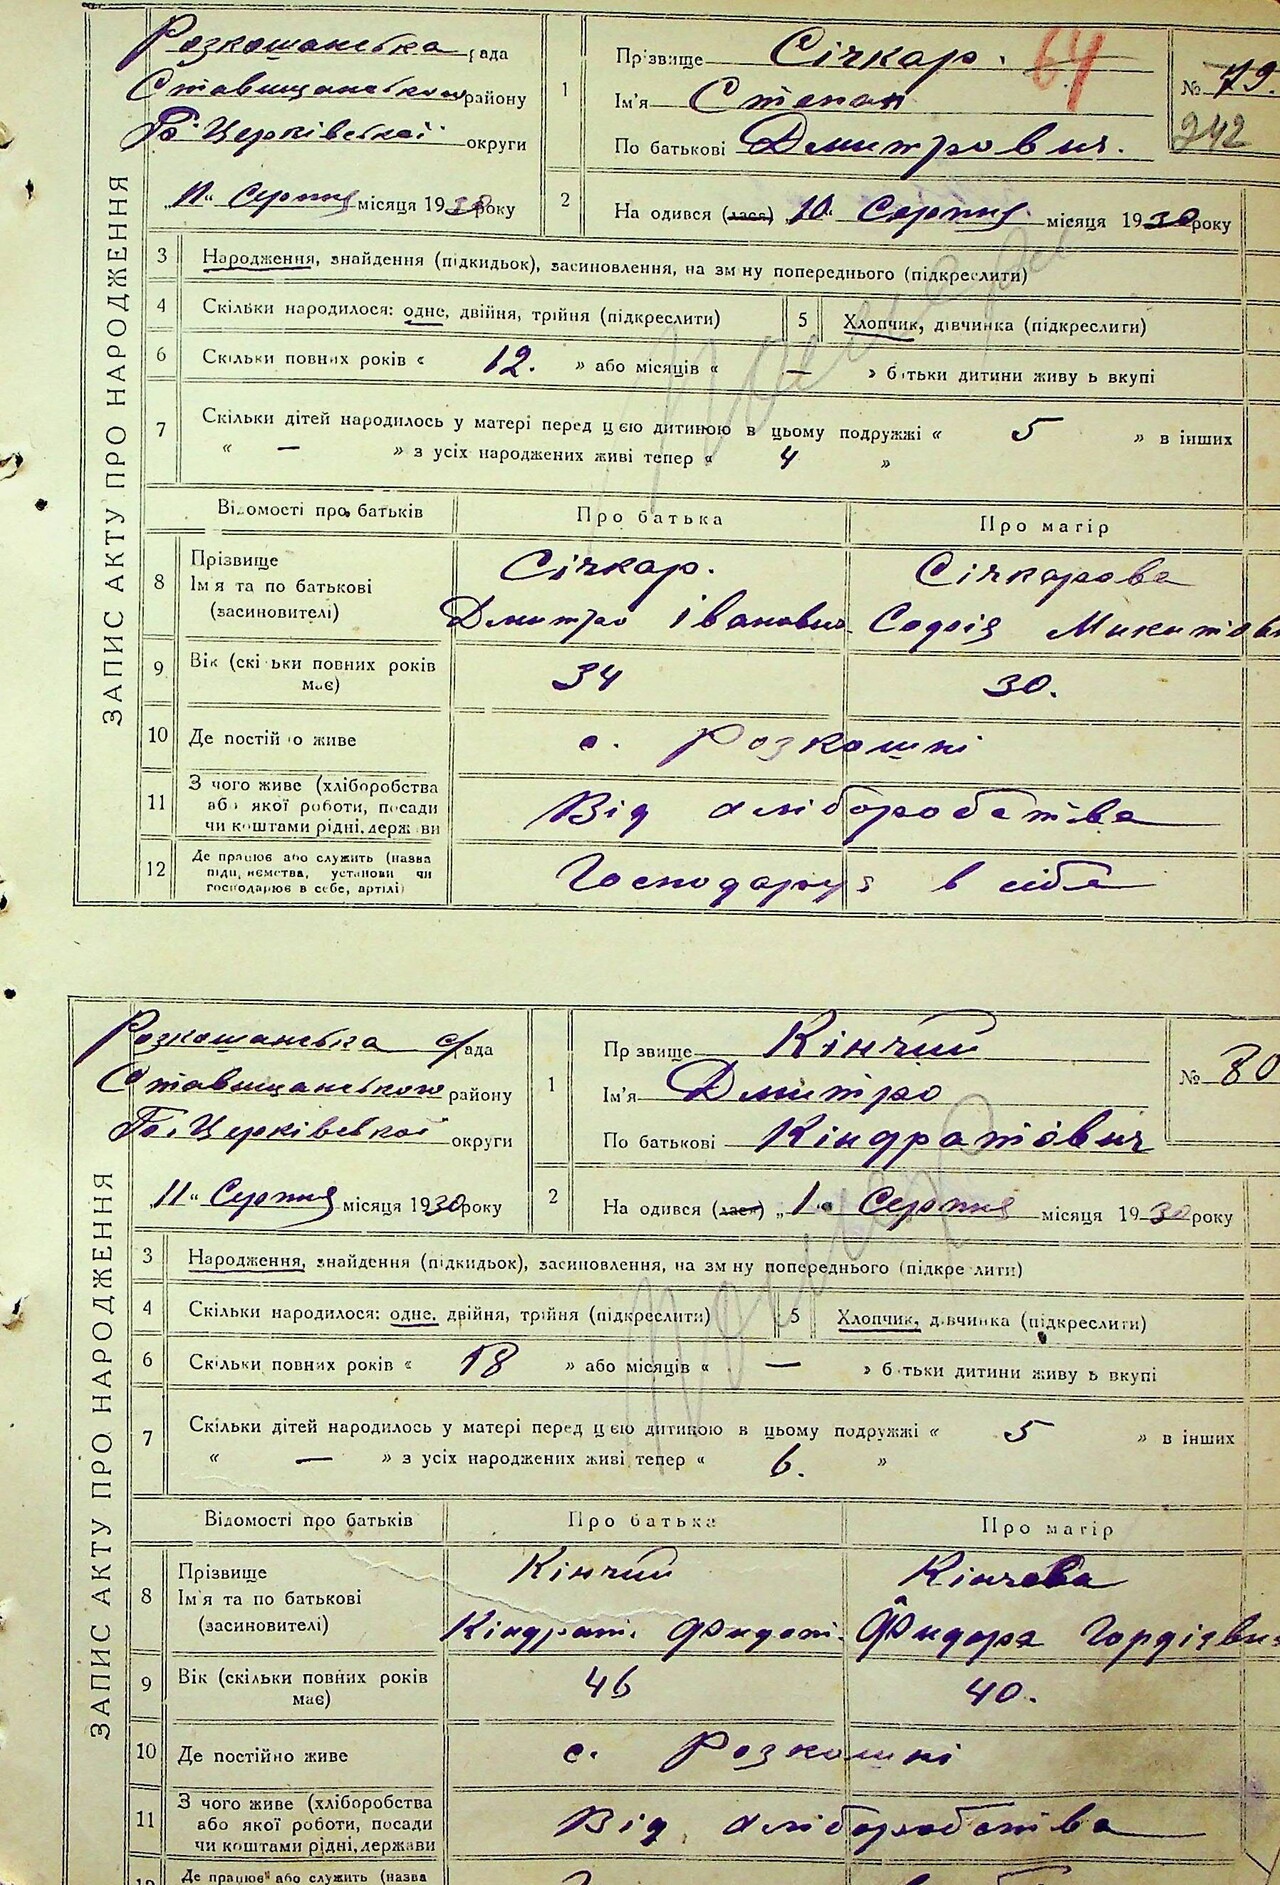 ЗАПИС АКТУ ПРО НАРОДЖЕННЯ
Розкошанська рада
Ставищанського району
Б. Церківської округи
„11“ Серпня місяця 1930 року
1
Прізвище Січкар.
64
Ім'я Степан
По батькові Дмитрович.
№ 79.
242
2
На одився (лася) „10“ Серпня місяця 1930 року
3 Народження, знайдення (підкидьок), засиновлення, на зм ну попереднього (підкреслити)
4 Скільки народилося: одне, двійня, трійня (підкреслити) 5 Хлопчик, дівчинка (підкреслити)
6 Скільки повних років « 12. » або місяців « — » батьки дитини живу ь вкупі
7 Скільки дітей народилось у матері перед цією дитиною в цьому подружжі « 5 » в інших
« — » з усіх народжених живі тепер « 4 »
Відомості про батьків Про батька Про матір
8 Прізвище Січкар. Січкарова
Ім'я та по батькові
(засиновителі) Дмитро Іванович Софія Микитовн
9 Вік (скільки повних років має) 34 30.
10 Де постійно живе с. Розкошні
11 З чого живе (хліборобства
або якої роботи, посади Від хліборобства
чи коштами рідні, держави
12 Де працює або служить (назва
підприємства, установи чи Господарює в себе
господарює в себе, артілі)
ЗАПИС АКТУ ПРО НАРОДЖЕННЯ
Розкошанська с/рада
Ставищанського району
Б. Церківської округи
„11“ Серпня місяця 1930 року
1
Пр звище Кінчий
Ім'я Дмитро
По батькові Кіндратович
№ 80
2
На одився (лася) „1“ Серпня місяця 1930 року
3 Народження, знайдення (підкидьок), засиновлення, на зм ну попереднього (підкре лити)
4 Скільки народилося: одне, двійня, трійня (підкреслити) 5 Хлопчик, дівчинка (підкреслити)
6 Скільки повних років « 18 » або місяців « — » батьки дитини живу ь вкупі
7 Скільки дітей народилось у матері перед цією дитиною в цьому подружжі « 5 » в інших
« — » з усіх народжених живі тепер « 6. »
Відомості про батьків Про батька Про матір
8 Прізвище Кінчий Кінчева
Ім'я та по батькові
(засиновителі) Кіндрат. Фидот. Фидора Гордієвн
9 Вік (скільки повних років має) 46 40.
10 Де постійно живе с. Розкошні
11 З чого живе (хліборобства
або якої роботи, посади Від хліборобства
чи коштами рідні, держави
12 Де працює або служить (назва